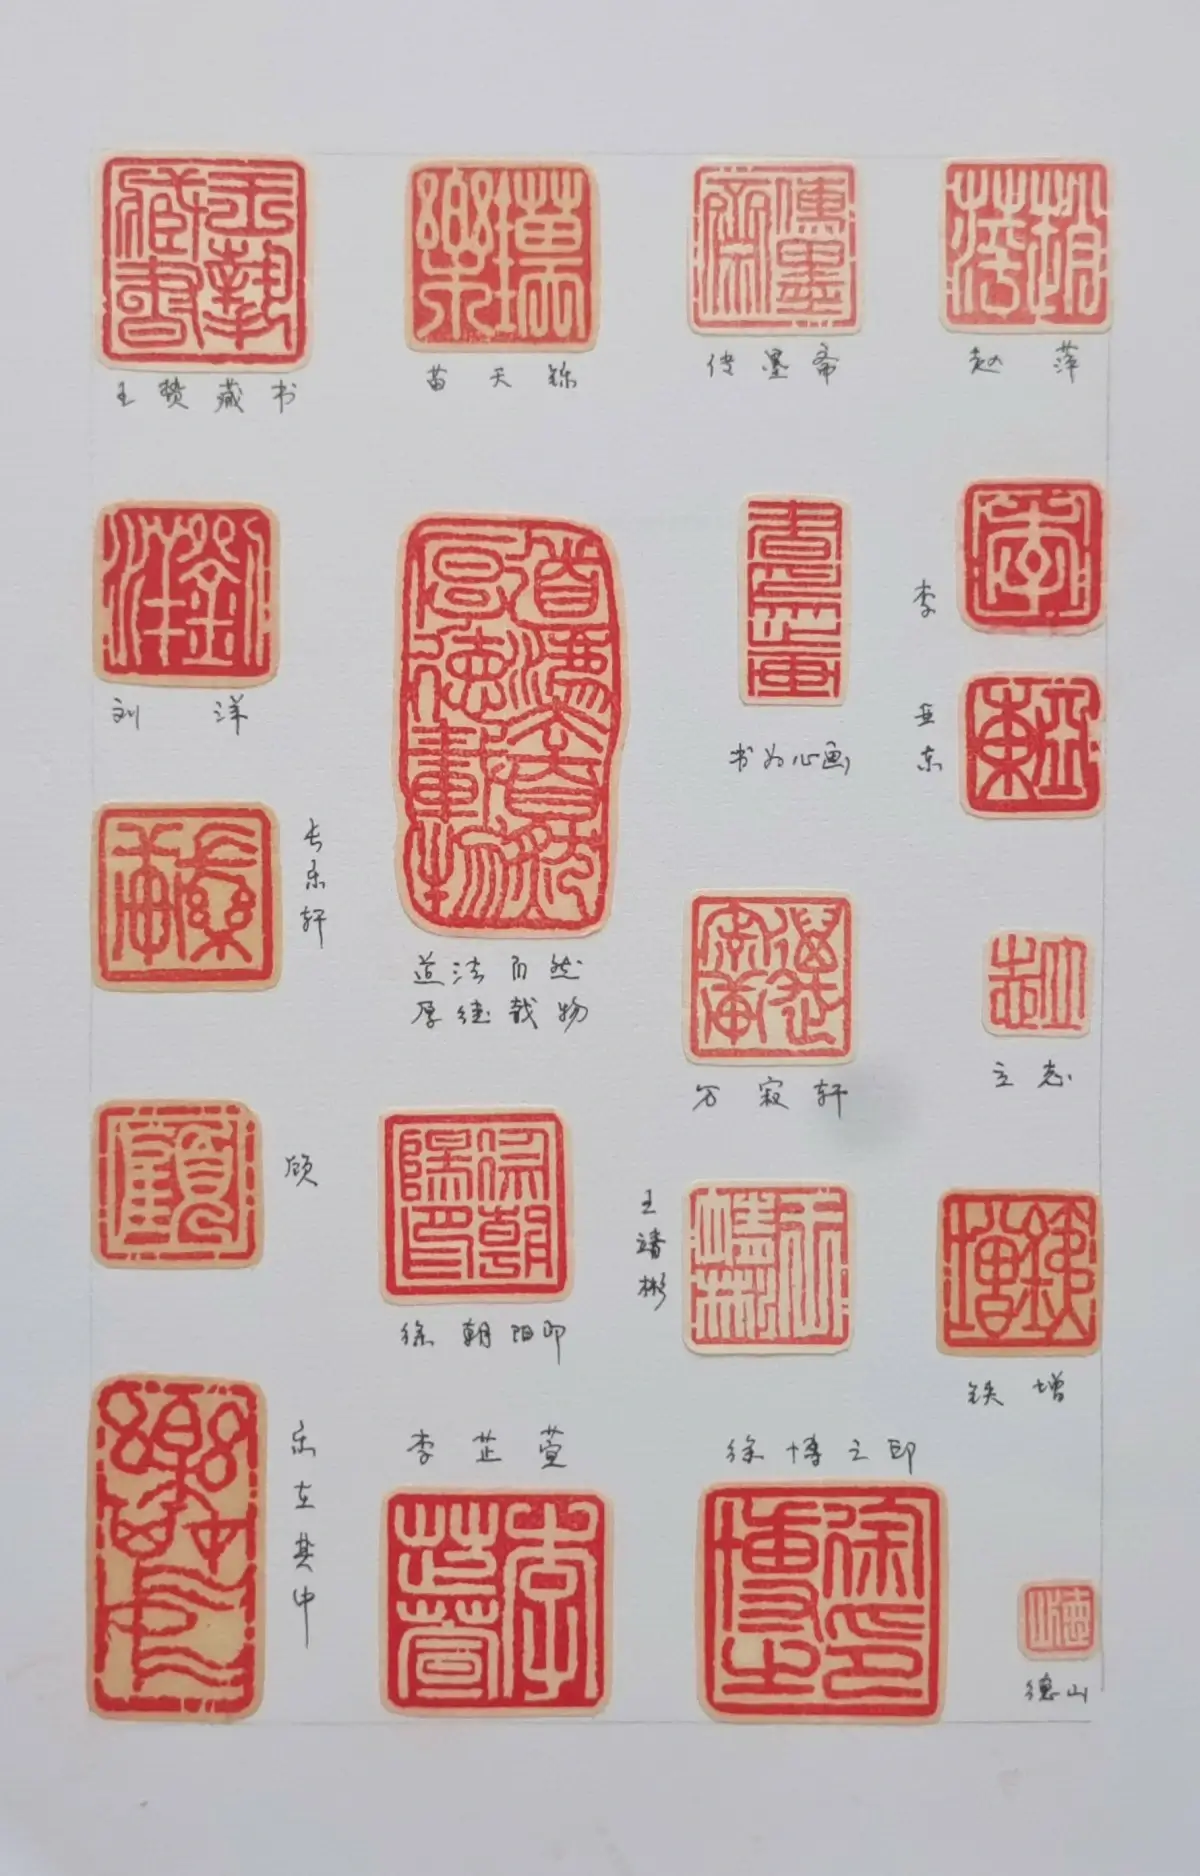 王赞藏书
苗天铄
传墨斋
赵萍
刘洋
道法自然
厚德载物
书为心画
李
亚东
长乐轩
万寂轩
立志
顾
徐朝阳印
王靖彬
铁增
乐在其中
李芷萱
徐博之印
德山